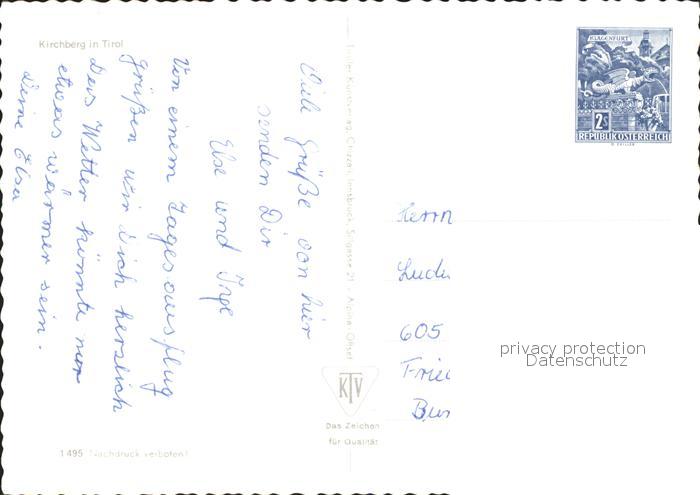 Kirchberg in Tirol
Viele Grüße von hier
senden Dir
Else und Inge
Von einem Tagesausflug
grüßen wir Dich herzlich
Das Wetter könnte nur
etwas wärmer sein.
Deine Elsa
1495 Nachdruck verboten!
Tiroler Kunstverlag Chizzali, Innsbruck, Sillgasse 21 - Alpina Offset
KTV
Das Zeichen
für Qualität
KLAGENFURT
2s
REPUBLIK ÖSTERREICH
Herrn
605
privacy protection
Datenschutz